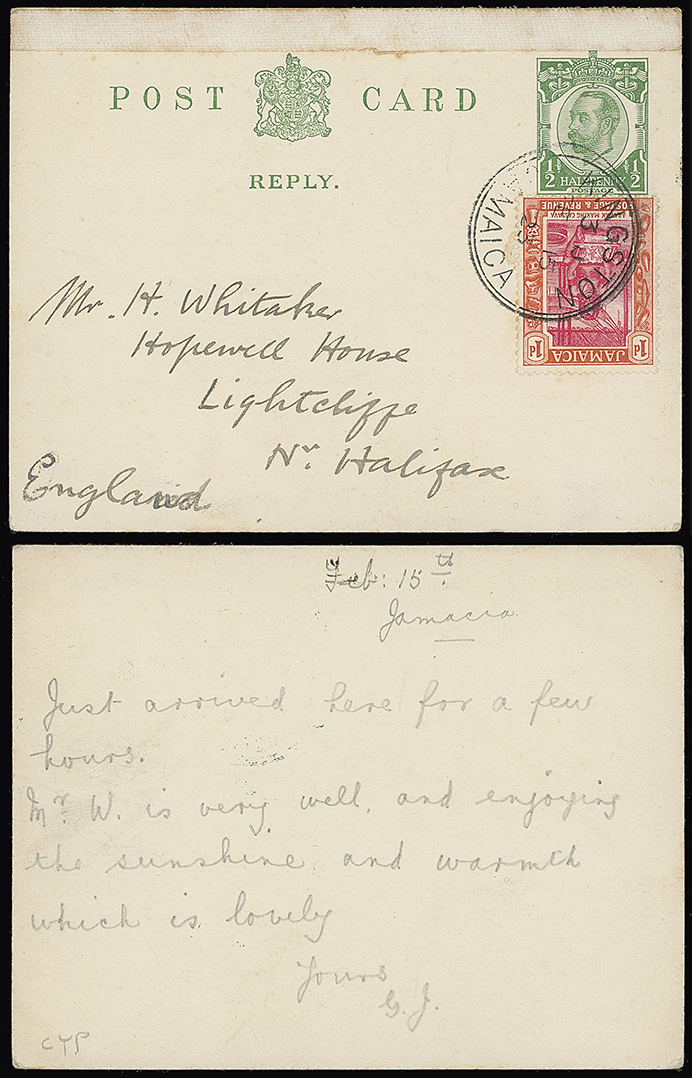 POST CARD
REPLY.
1/2 HALFPENNY 1/2
POSTAGE
KINGSTON
JAMAICA
POSTAGE & REVENUE
1d JAMAICA 1d
Mr. H. Whitaker
Hopewell House
Lightcliffe
Nr. Halifax
England
Feb: 15th
Jamacia
Just arrived here for a few
hours.
Mr. W. is very well, and enjoying
the sunshine and warmth
which is lovely
Yours
G. J.
CYP